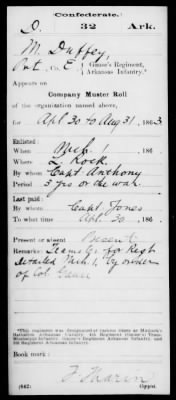 Confederate.
D. 32 Ark.
M. Duffey,
Pvt., Co. E, Gause's Regiment, Arkansas Infantry.*
Appears on
Company Muster Roll
of the organization named above,
for Apl 30 to Aug 31, 1863
Enlisted:
When Mch 1, 186 .
Where L. Rock.
By whom Capt. Anthony
Period 3 yrs or the war.
Last paid:
By whom Capt. Jones
To what time Apl 30, 186 .
Present or absent Present
Remarks: Teams for Regt
detailed Mch 1, by order
of Col. Gause
Book mark:
(642) Copyist.